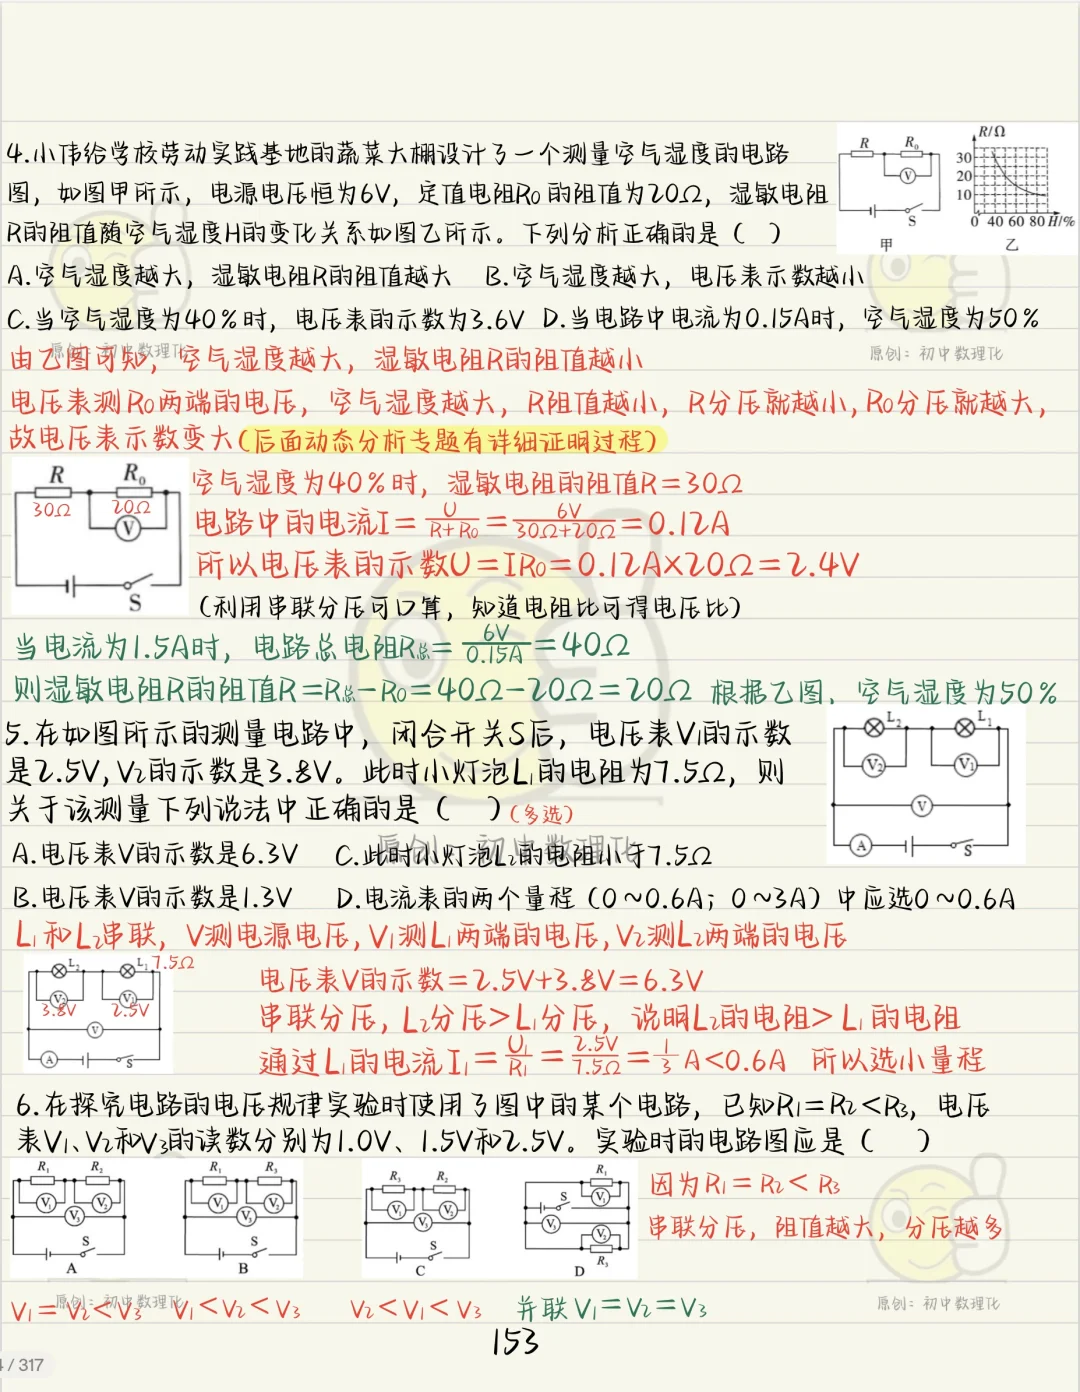 4.小伟给学校劳动实践基地的蔬菜大棚设计了一个测量空气湿度的电路
图，如图甲所示，电源电压恒为6V，定值电阻R₀的阻值为20Ω，湿敏电阻
R的阻值随空气湿度H的变化关系如图乙所示。下列分析正确的是（　）
R R₀ V S 甲
R/Ω 30 20 10 0 40 60 80 H/% 乙
A.空气湿度越大，湿敏电阻R的阻值越大 B.空气湿度越大，电压表示数越小
C.当空气湿度为40%时，电压表的示数为3.6V D.当电路中电流为0.15A时，空气湿度为50%
原创：初中数理化
原创：初中数理化
由乙图可知，空气湿度越大，湿敏电阻R的阻值越小
电压表测R₀两端的电压，空气湿度越大，R阻值越小，R分压就越小，R₀分压就越大，
故电压表示数变大（后面动态分析专题有详细证明过程）
R R₀ 30Ω 20Ω V S
空气湿度为40%时，湿敏电阻的阻值R=30Ω
电路中的电流I=U/(R+R₀)=6V/(30Ω+20Ω)=0.12A
所以电压表的示数U=IR₀=0.12A×20Ω=2.4V
（利用串联分压可口算，知道电阻比可得电压比）
当电流为1.5A时，电路总电阻R总=6V/0.15A=40Ω
则湿敏电阻R的阻值R=R总-R₀=40Ω-20Ω=20Ω 根据乙图，空气湿度为50%
5.在如图所示的测量电路中，闭合开关S后，电压表V₁的示数
是2.5V，V₂的示数是3.8V。此时小灯泡L₁的电阻为7.5Ω，则
关于该测量下列说法中正确的是（　）（多选）
L₂ L₁ V₂ V₁ V A S
原创：初中数理化
A.电压表V的示数是6.3V C.此时小灯泡L₂的电阻小于7.5Ω
B.电压表V的示数是1.3V D.电流表的两个量程（0~0.6A；0~3A）中应选0~0.6A
L₁和L₂串联，V测电源电压，V₁测L₁两端的电压，V₂测L₂两端的电压
L₂ L₁ 7.5Ω V₂ V₁ 3.8V 2.5V V A S
电压表V的示数=2.5V+3.8V=6.3V
串联分压，L₂分压>L₁分压，说明L₂的电阻>L₁的电阻
通过L₁的电流I₁=U₁/R₁=2.5V/7.5Ω=1/3A<0.6A 所以选小量程
6.在探究电路的电压规律实验时使用了图中的某个电路，已知R₁=R₂<R₃，电压
表V₁、V₂和V₃的读数分别为1.0V、1.5V和2.5V。实验时的电路图应是（　）
R₁ R₂ V₁ V₂ V₃ S A
R₁ R₃ V₁ V₂ V₃ S B
R₃ R₂ V₁ V₂ V₃ S C
R₁ S V₁ V₃ V₂ R₃ D
因为R₁=R₂<R₃
串联分压，阻值越大，分压越多
原创：初中数理化
原创：初中数理化
V₁=V₂<V₃ V₁<V₂<V₃ V₂<V₁<V₃ 并联V₁=V₂=V₃
153
/ 317